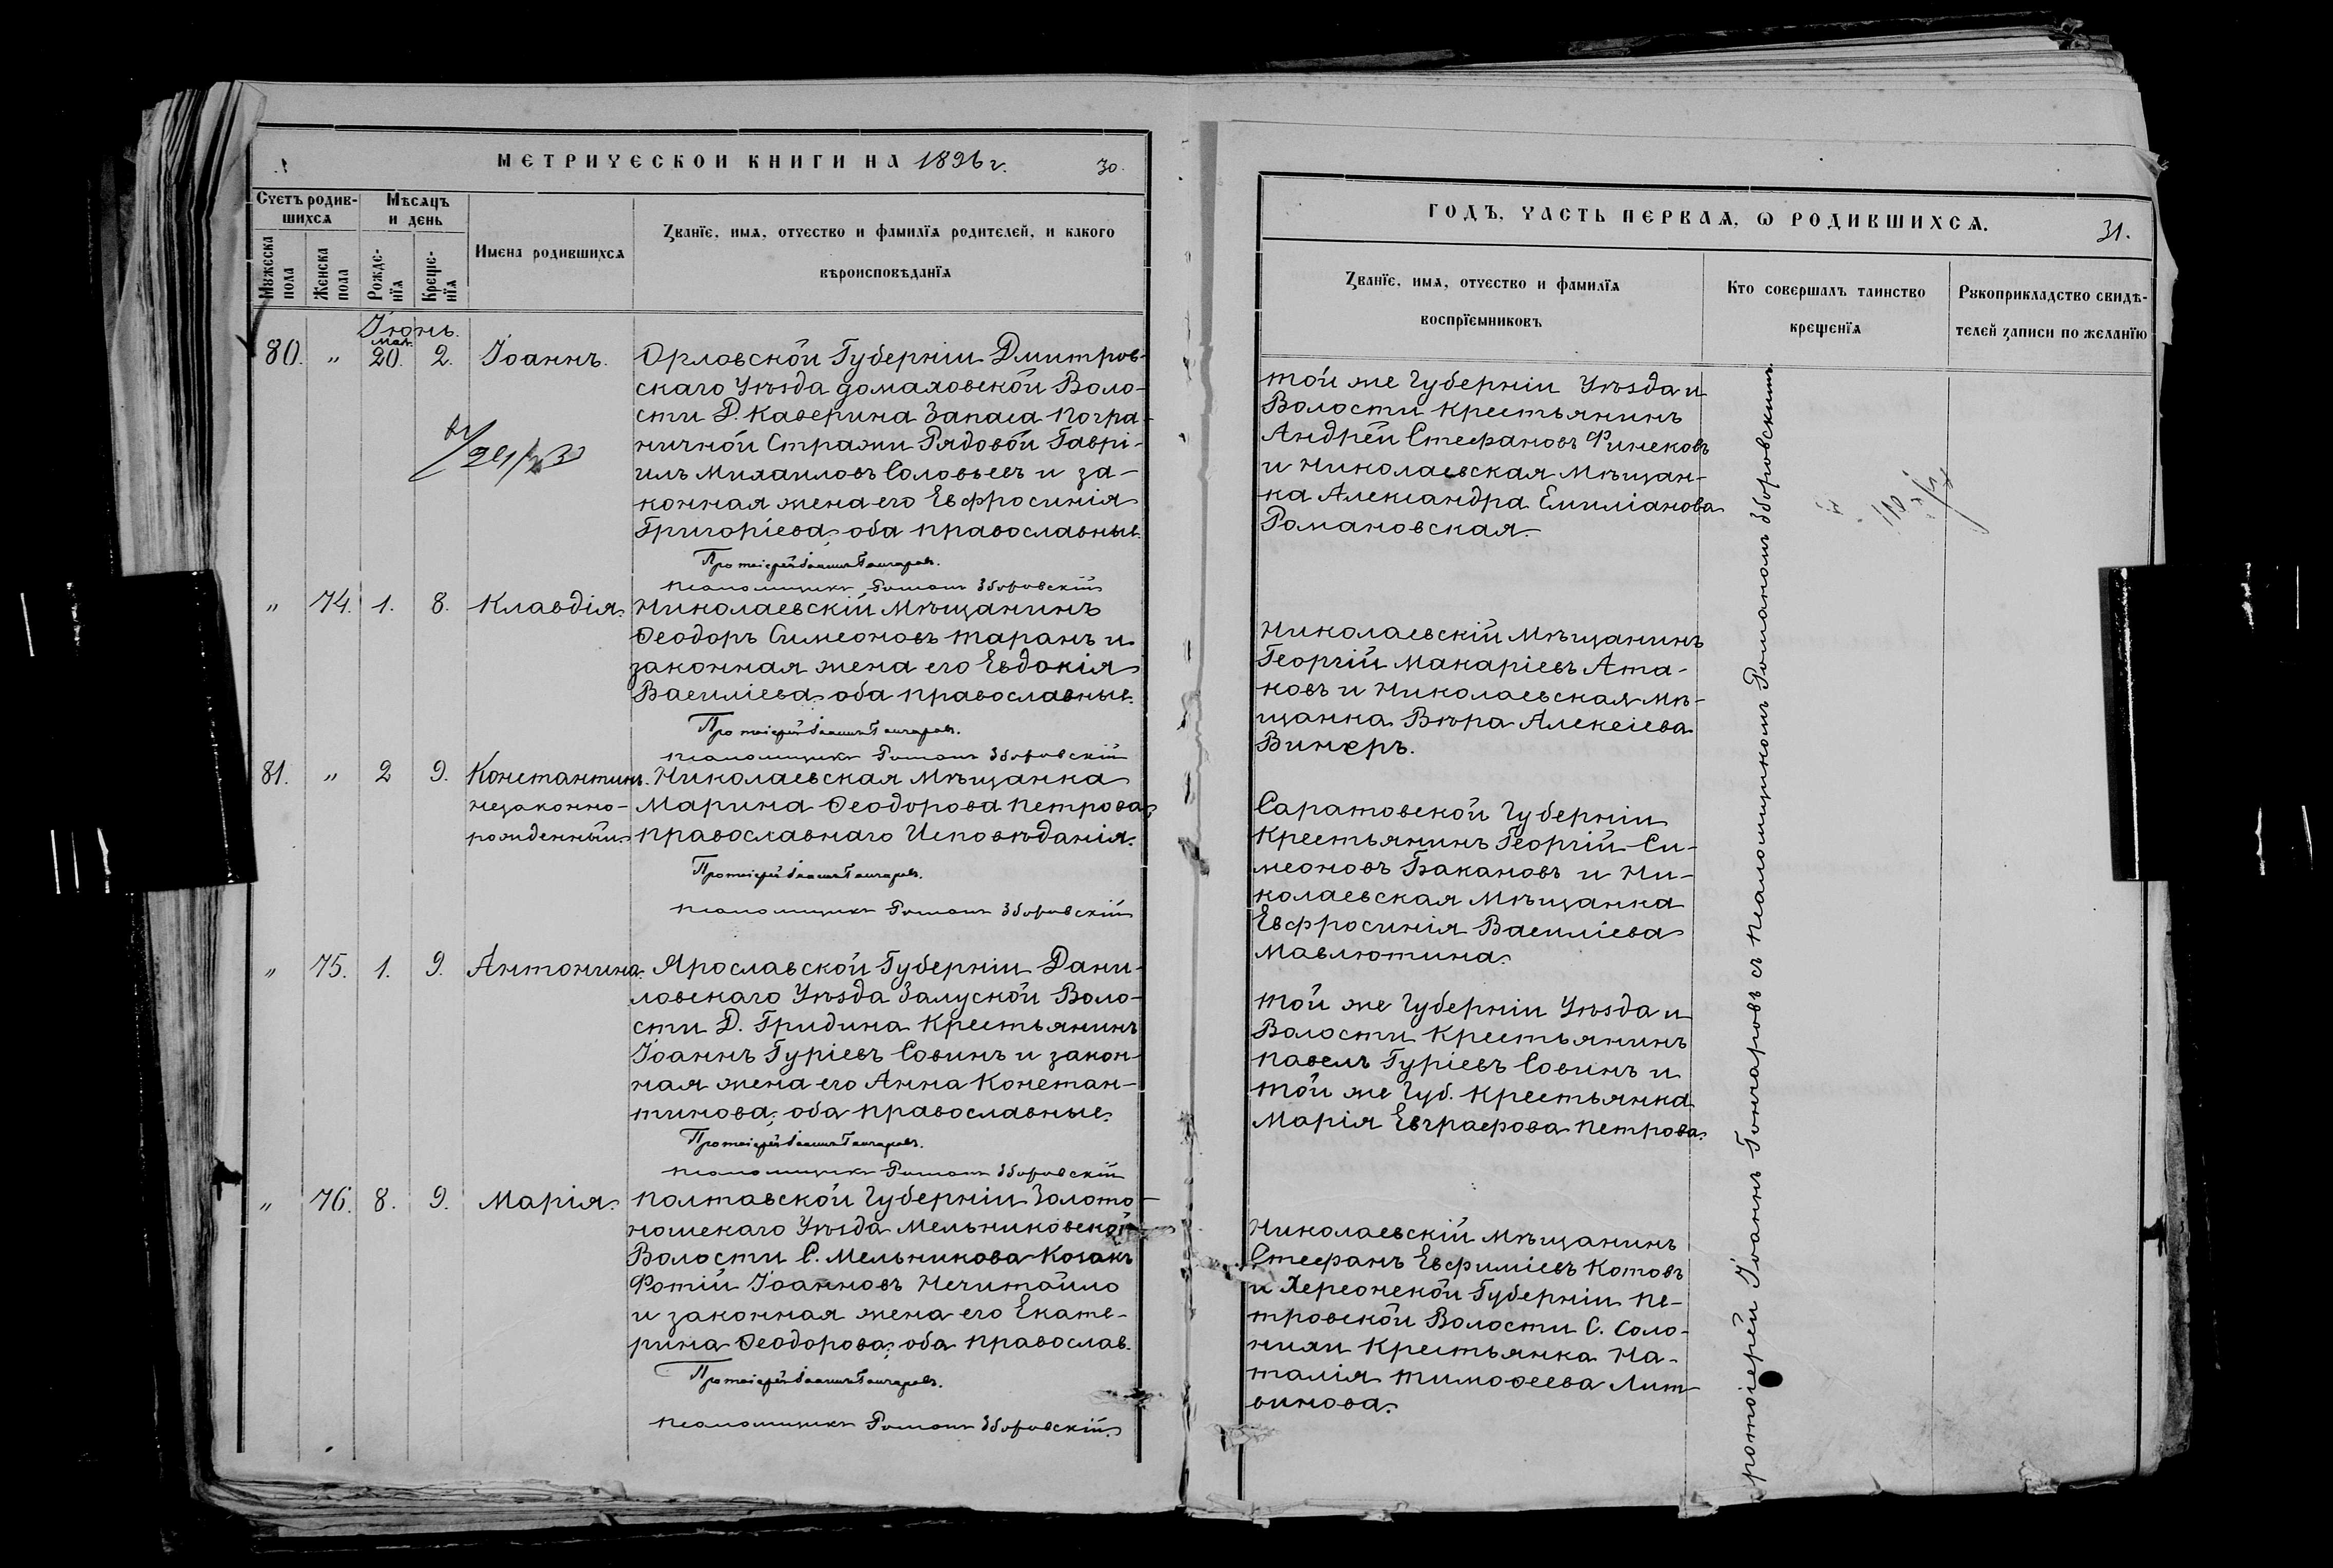 МЕТРИЧЕСКОЙ КНИГИ НА 1896 г. 30.
Счетъ родив-
шихся
Мѣсяцъ
и день
Мужеска
пола
Женска
пола
Рожде-
нїя
Креще-
нїя
Имена родившихся
Званїе, имя, отчество и фамилїя родителей, и какого
вѣроисповѣданїя
Іюнь.
Мая.
80. " 20. 2. Іоаннъ. Орловской Губерніи Дмитров-
скаго Уѣзда Домаховской Воло-
сти Д. Каверина Запаса Погра-
ничной Стражи Рядовой Гаврі-
илъ Михаиловъ Соловьевъ и за-
конная жена его Евфросинія
Григоріева, оба православные.
Протоіерей Іоаннъ Гончаровъ.
Псаломщикъ Романъ Зборовскій
" 74. 1. 8. Клавдія. Николаевскій Мѣщанинъ
Ѳеодоръ Симеоновъ Таранъ и
законная жена его Евдокія
Василіева, оба православные.
Протоіерей Іоаннъ Гончаровъ.
Псаломщикъ Романъ Зборовскій
81. " 2 9. Константинъ. Николаевская Мѣщанка
незаконно- Марина Ѳеодорова Петрова,
рожденный. православнаго Исповѣданія.
Протоіерей Іоаннъ Гончаровъ.
Псаломщикъ Романъ Зборовскій
" 75. 1. 9. Антонина. Ярославской Губерніи Дани-
ловскаго Уѣзда Залуской Воло-
сти Д. Гридина Крестьянинъ
Іоаннъ Гуріевъ Совинъ и закон-
ная жена его Анна Констан-
тинова, оба православные.
Протоіерей Іоаннъ Гончаровъ.
Псаломщикъ Романъ Зборовскій
" 76. 8. 9. Марія. Полтавской Губерніи Золото-
ношскаго Уѣзда Мельниковской
Волости С. Мельникова Козакъ
Фотій Іоанновъ Нечитайло
и законная жена его Екате-
рина Ѳеодорова, оба православ.
Протоіерей Іоаннъ Гончаровъ.
Псаломщикъ Романъ Зборовскій.
ГОДЪ, ЧАСТЬ ПЕРВАЯ, Ѡ РОДИВШИХСЯ. 31.
Званїе, имя, отчество и фамилїя
воспрїемниковъ
Кто совершалъ таинство
крещенїя
Рукоприкладство свидѣ-
телей записи по желанїю
Той же Губерніи Уѣзда и
Волости Крестьянинъ
Андрей Стефановъ Финековъ
и Николаевская Мѣщан-
ка Александра Емиліанова
Романовская.
Николаевскій Мѣщанинъ
Георгій Макаріевъ Ата-
ковъ и Николаевская Мѣ-
щанка Вѣра Алексіева
Винеръ.
Саратовской Губерніи
Крестьянинъ Георгій Си-
меоновъ Бакановъ и Ни-
колаевская Мѣщанка
Евфросинія Василіева
Мавлютина.
Той же Губерніи Уѣзда и
Волости Крестьянинъ
Павелъ Гуріевъ Совинъ и
Той же Губ. Крестьянка
Марія Евграфова Петрова.
Николаевскій Мѣщанинъ
Стефанъ Евфиміевъ Котовъ
и Херсонской Губерніи Пе-
тровской Волости С. Соло-
нихи Крестьянка На-
талія Тимоѳеева Лит-
винова.
Протоіерей Іоаннъ Гончаровъ съ Псаломщикомъ Романомъ Зборовскимъ